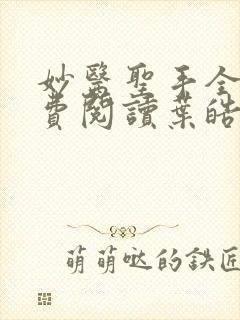 妙醫聖手全
費閱讀葉皓
萌萌噠的鉄匠